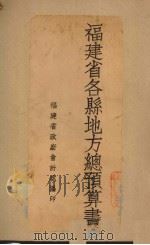 福建省各縣地方總預算書
福建省政府會計處編印